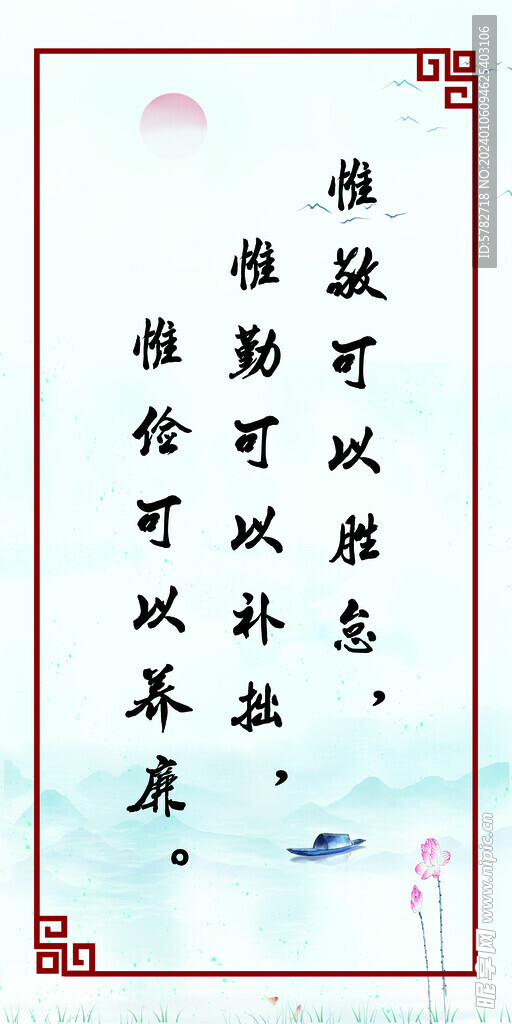 惟敬可以胜怠，
惟勤可以补拙，
惟俭可以养廉。
ID:5782718 NO:20240106094625403106
昵享网 www.nipic.cn